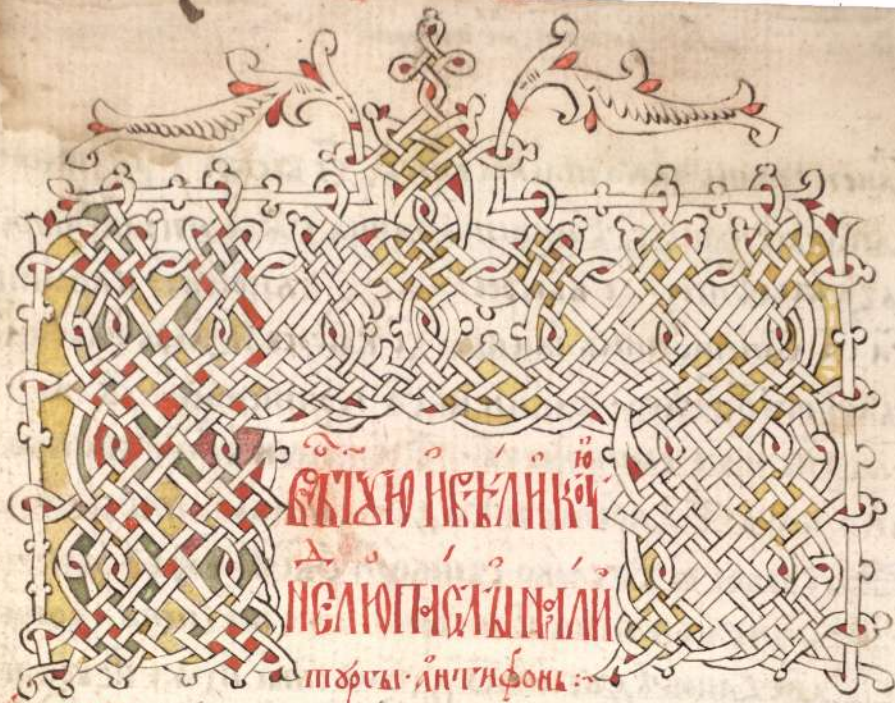 Въ ст҃ꙋю и великꙋю
неⷣлю пасхы на ли
тургы · антифонь :~